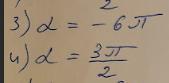 2
3) α = -6π
4) α = 3π/2